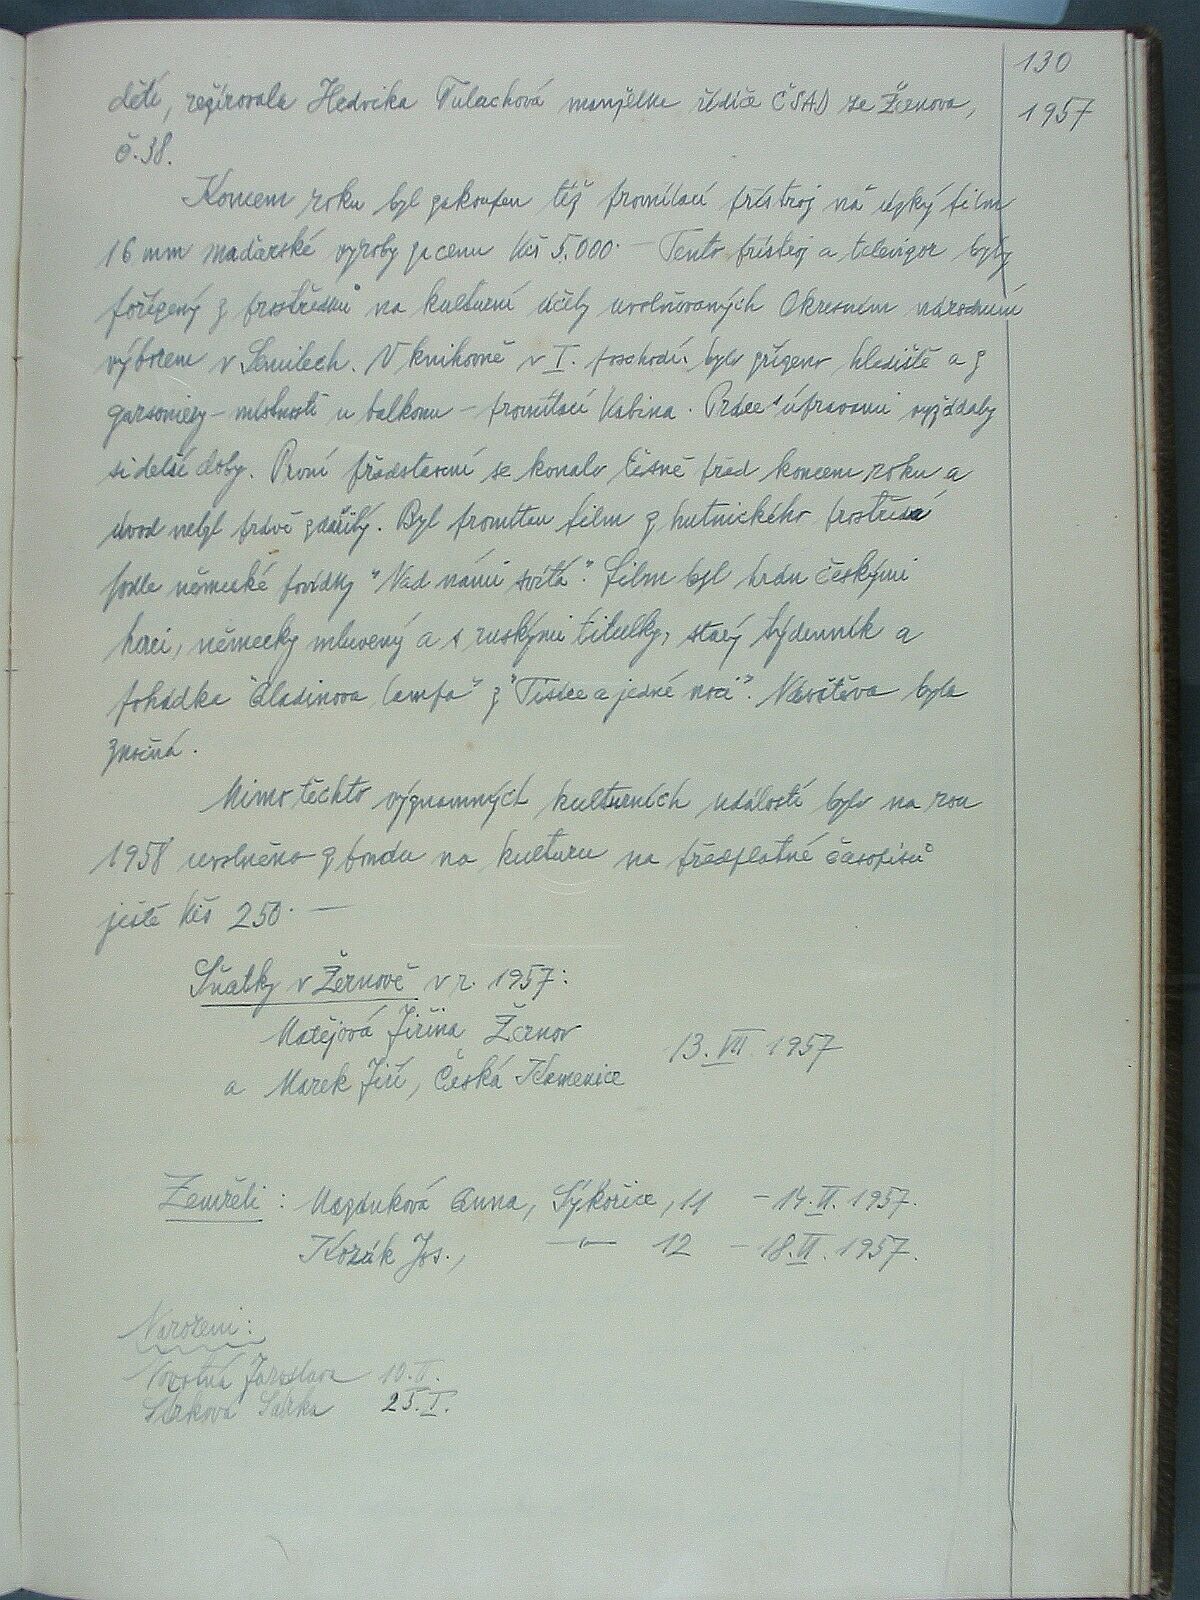 130
1957
dětí, režírovala Hedvika Tulachová manželka řidiče ČSAD ze Žernova,
č. 38.
Koncem roku byl zakoupen též promítací přístroj na úzký film
16 mm maďarské výroby za cenu Kčs 5.000.— Tento přístroj a televizor byly
pořízeny z prostředků na kulturní účely uvolňovaných Okresním národním
výborem v Semilech. V knihovně v I. poschodí bylo zřízeno hlediště a z
garsoniery - místnosti u balkonu - promítací kabina. Práce s úpravami vyžádaly
si delší doby. První představení se konalo těsně před koncem roku a
úvod nebyl právě zdařilý. Byl promítán film z hutnického prostředí
podle německé povídky "Nad námi svítá". Film byl hrán českými
herci, německy mluvený a s ruskými titulky, starý týdenník a
pohádka "Aladinova lampa" z "Tisíce a jedné noci". Návštěva byla
značná.
Mimo těchto významných kulturních událostí bylo na rok
1958 uvolněno z fondu na kulturu na předplatné časopisů
ještě Kčs 250.—
Sňatky v Žernově v r. 1957:
Matějová Jiřina Žernov
13. VII. 1957
a Marek Jiří, Česká Kamenice
Zemřeli: Mazánková Anna, Sýkořice, 11 - 14. II. 1957.
Kozák Jos., —"— 12 - 18. VI. 1957.
Narozeni:
Novotná Jaroslava 10. II.
Šírková Šárka 25. I.